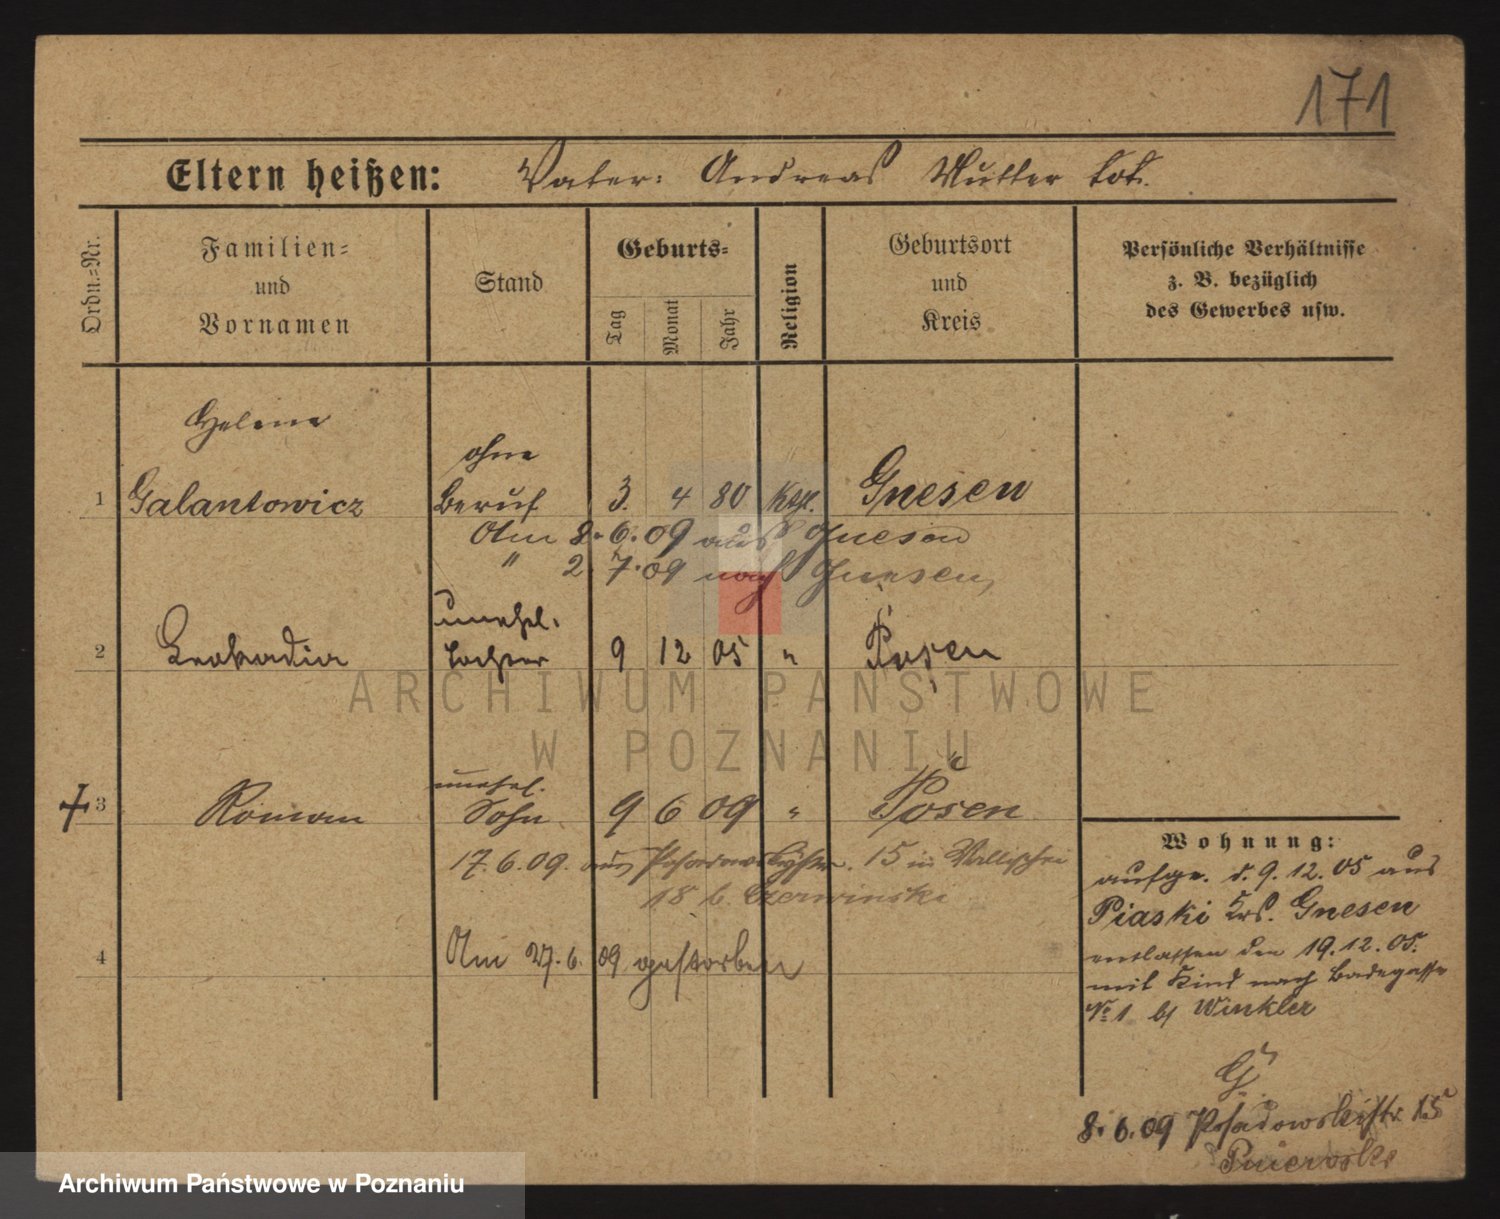 171
Eltern heißen: Vater: Andreas Mutter tot.
Ordn.=Nr.
Familien=
und
Vornamen
Stand
Geburts=
Tag
Monat
Jahr
Religion
Geburtsort
und
Kreis
Persönliche Verhältnisse
z. B. bezüglich
des Gewerbes usw.
Helene
ohne
1 Galantowicz Beruf 3. 4 80 Kth. Gnesen
Am 8.6.09 aus Gnesen
" 2 7.09 nach Gnesen,
unehel.
2 Leokadia Tochter 9 12 05 " Posen
ARCHIWUM PAŃSTWOWE
W POZNANIU
unehel.
+ 3 Roman Sohn 9 6 09 " Posen
17.6.09. aus Posadowskystr. 15 in Wallischei
18 b. Czerwinski
4 Am 27.6.09 gestorben
Wohnung:
aufge. d. 9.12.05 aus
Piaski Krs. Gnesen
entlassen den 19.12.05.
mit Kind nach Badegasse
No 1 bei Winkler
G.
8.6.09 Posadowskistr. 15
Archiwum Państwowe w Poznaniu